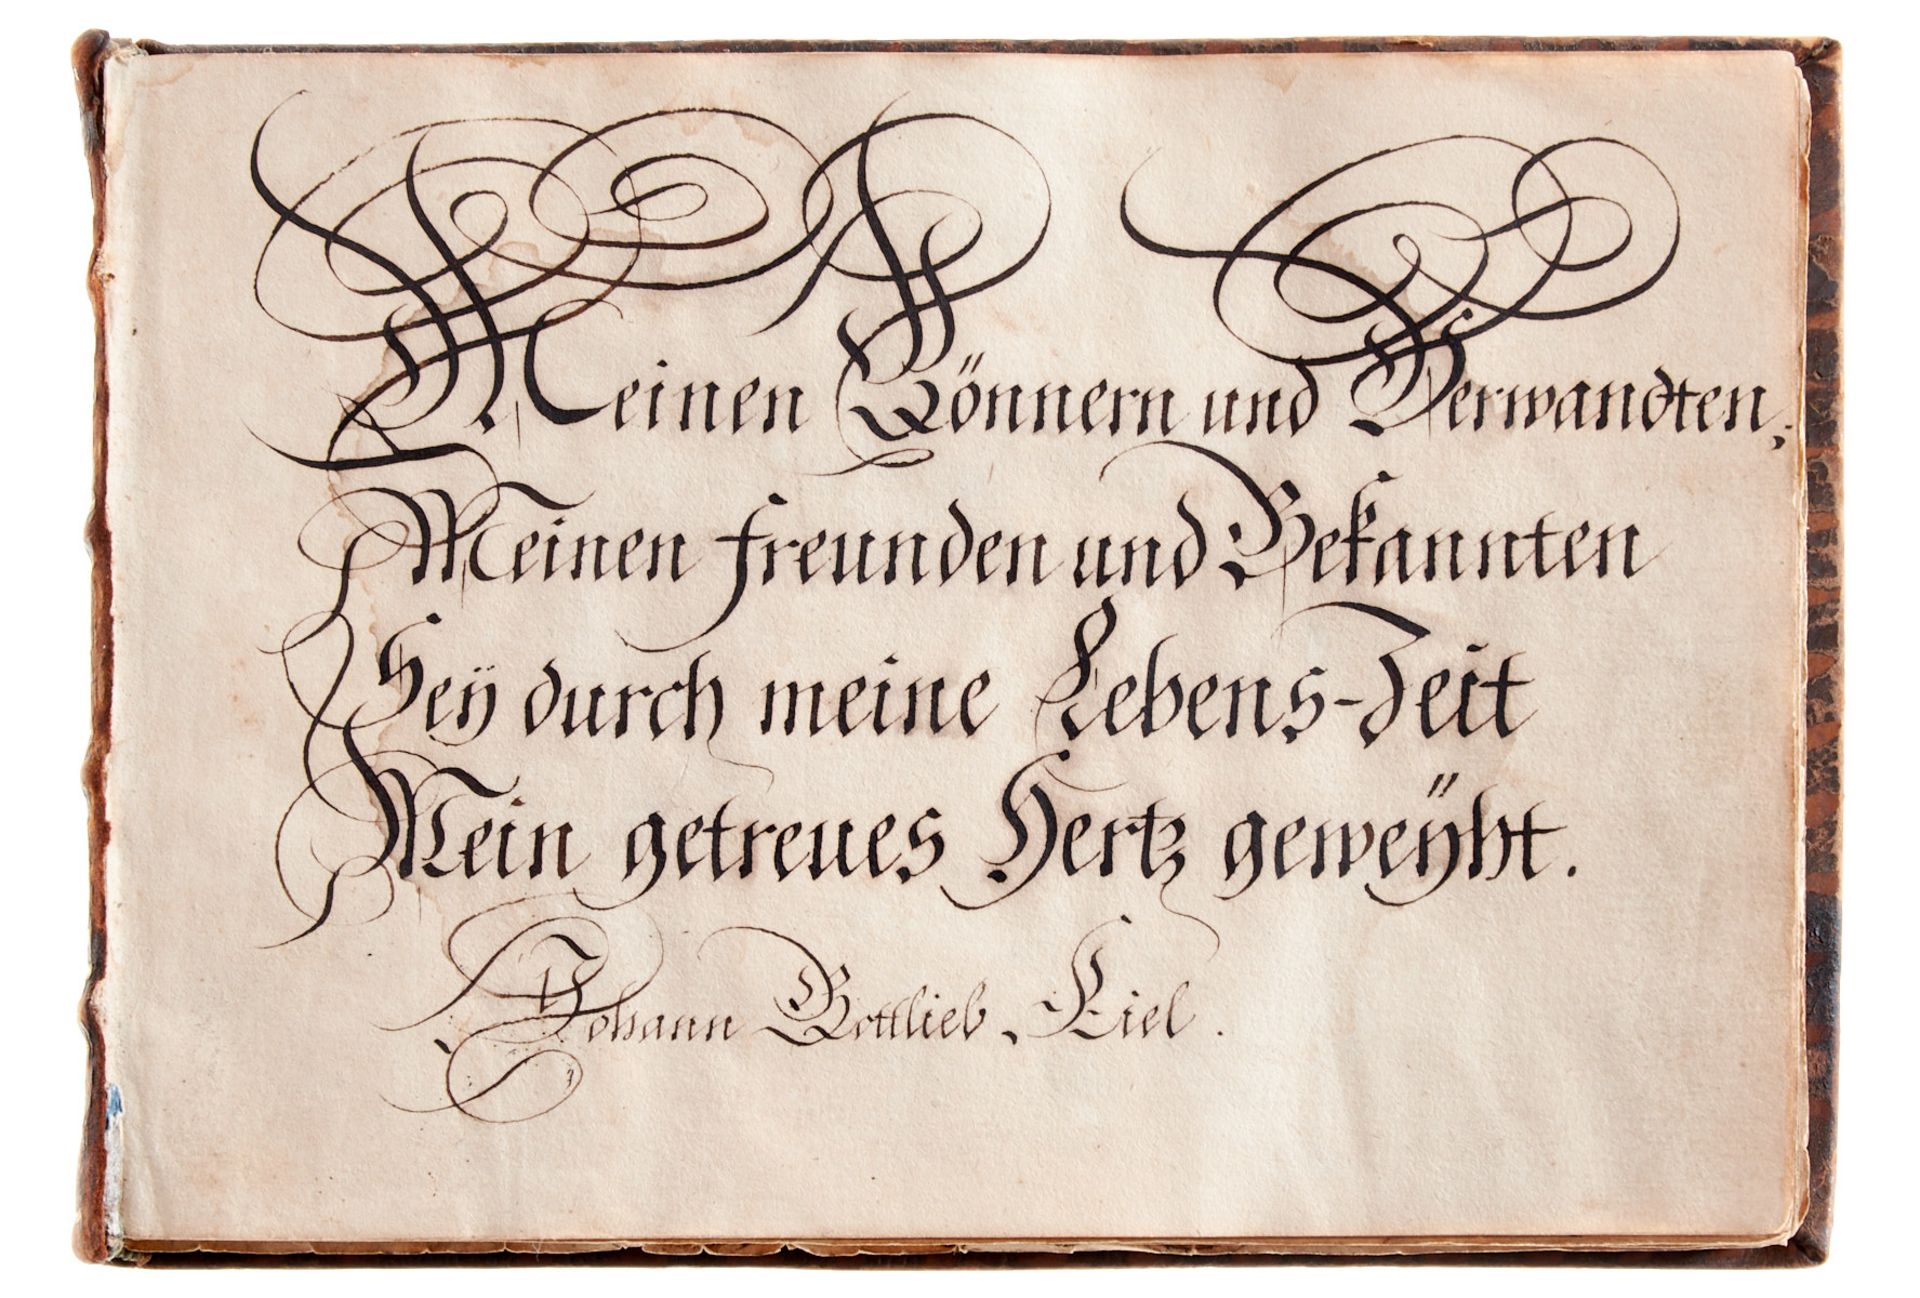 Meinen Gönnern und Verwandten,
Meinen Freunden und Bekannten
Seÿ durch meine Lebens-Zeit
Mein getreues Hertz geweÿht.
Johann Gottlieb Kiel.